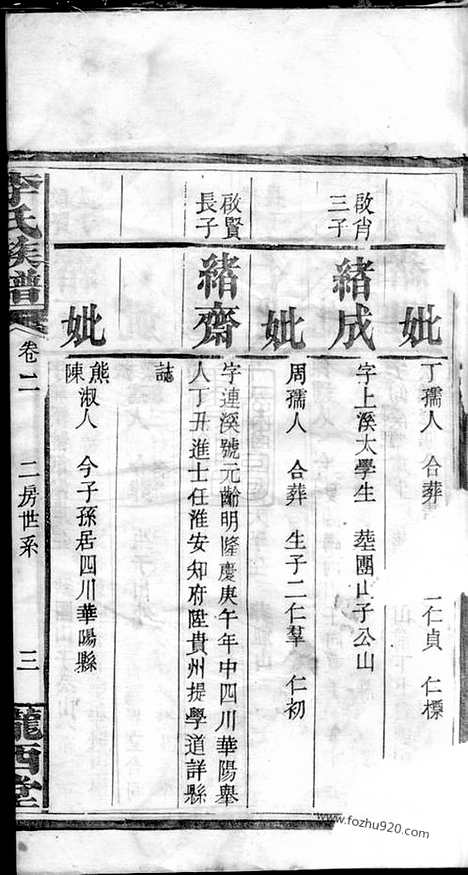 妣
丁孺人 合葬 一仁貞 仁標
啟肖三子
緒成
字上溪太學生 塟團山子公山
妣
周孺人 合葬 生子二仁羣 仁初
啟賢長子
緒齋
字連溪號元齡明隆慶庚午年中四川華陽舉
人丁丑進士任淮安知府陞貴州提學道詳縣
誌
妣
熊陳淑人 今子孫居四川華陽縣
李氏族譜 卷二 二房世系 三 隴西堂
www.fozhu920.com